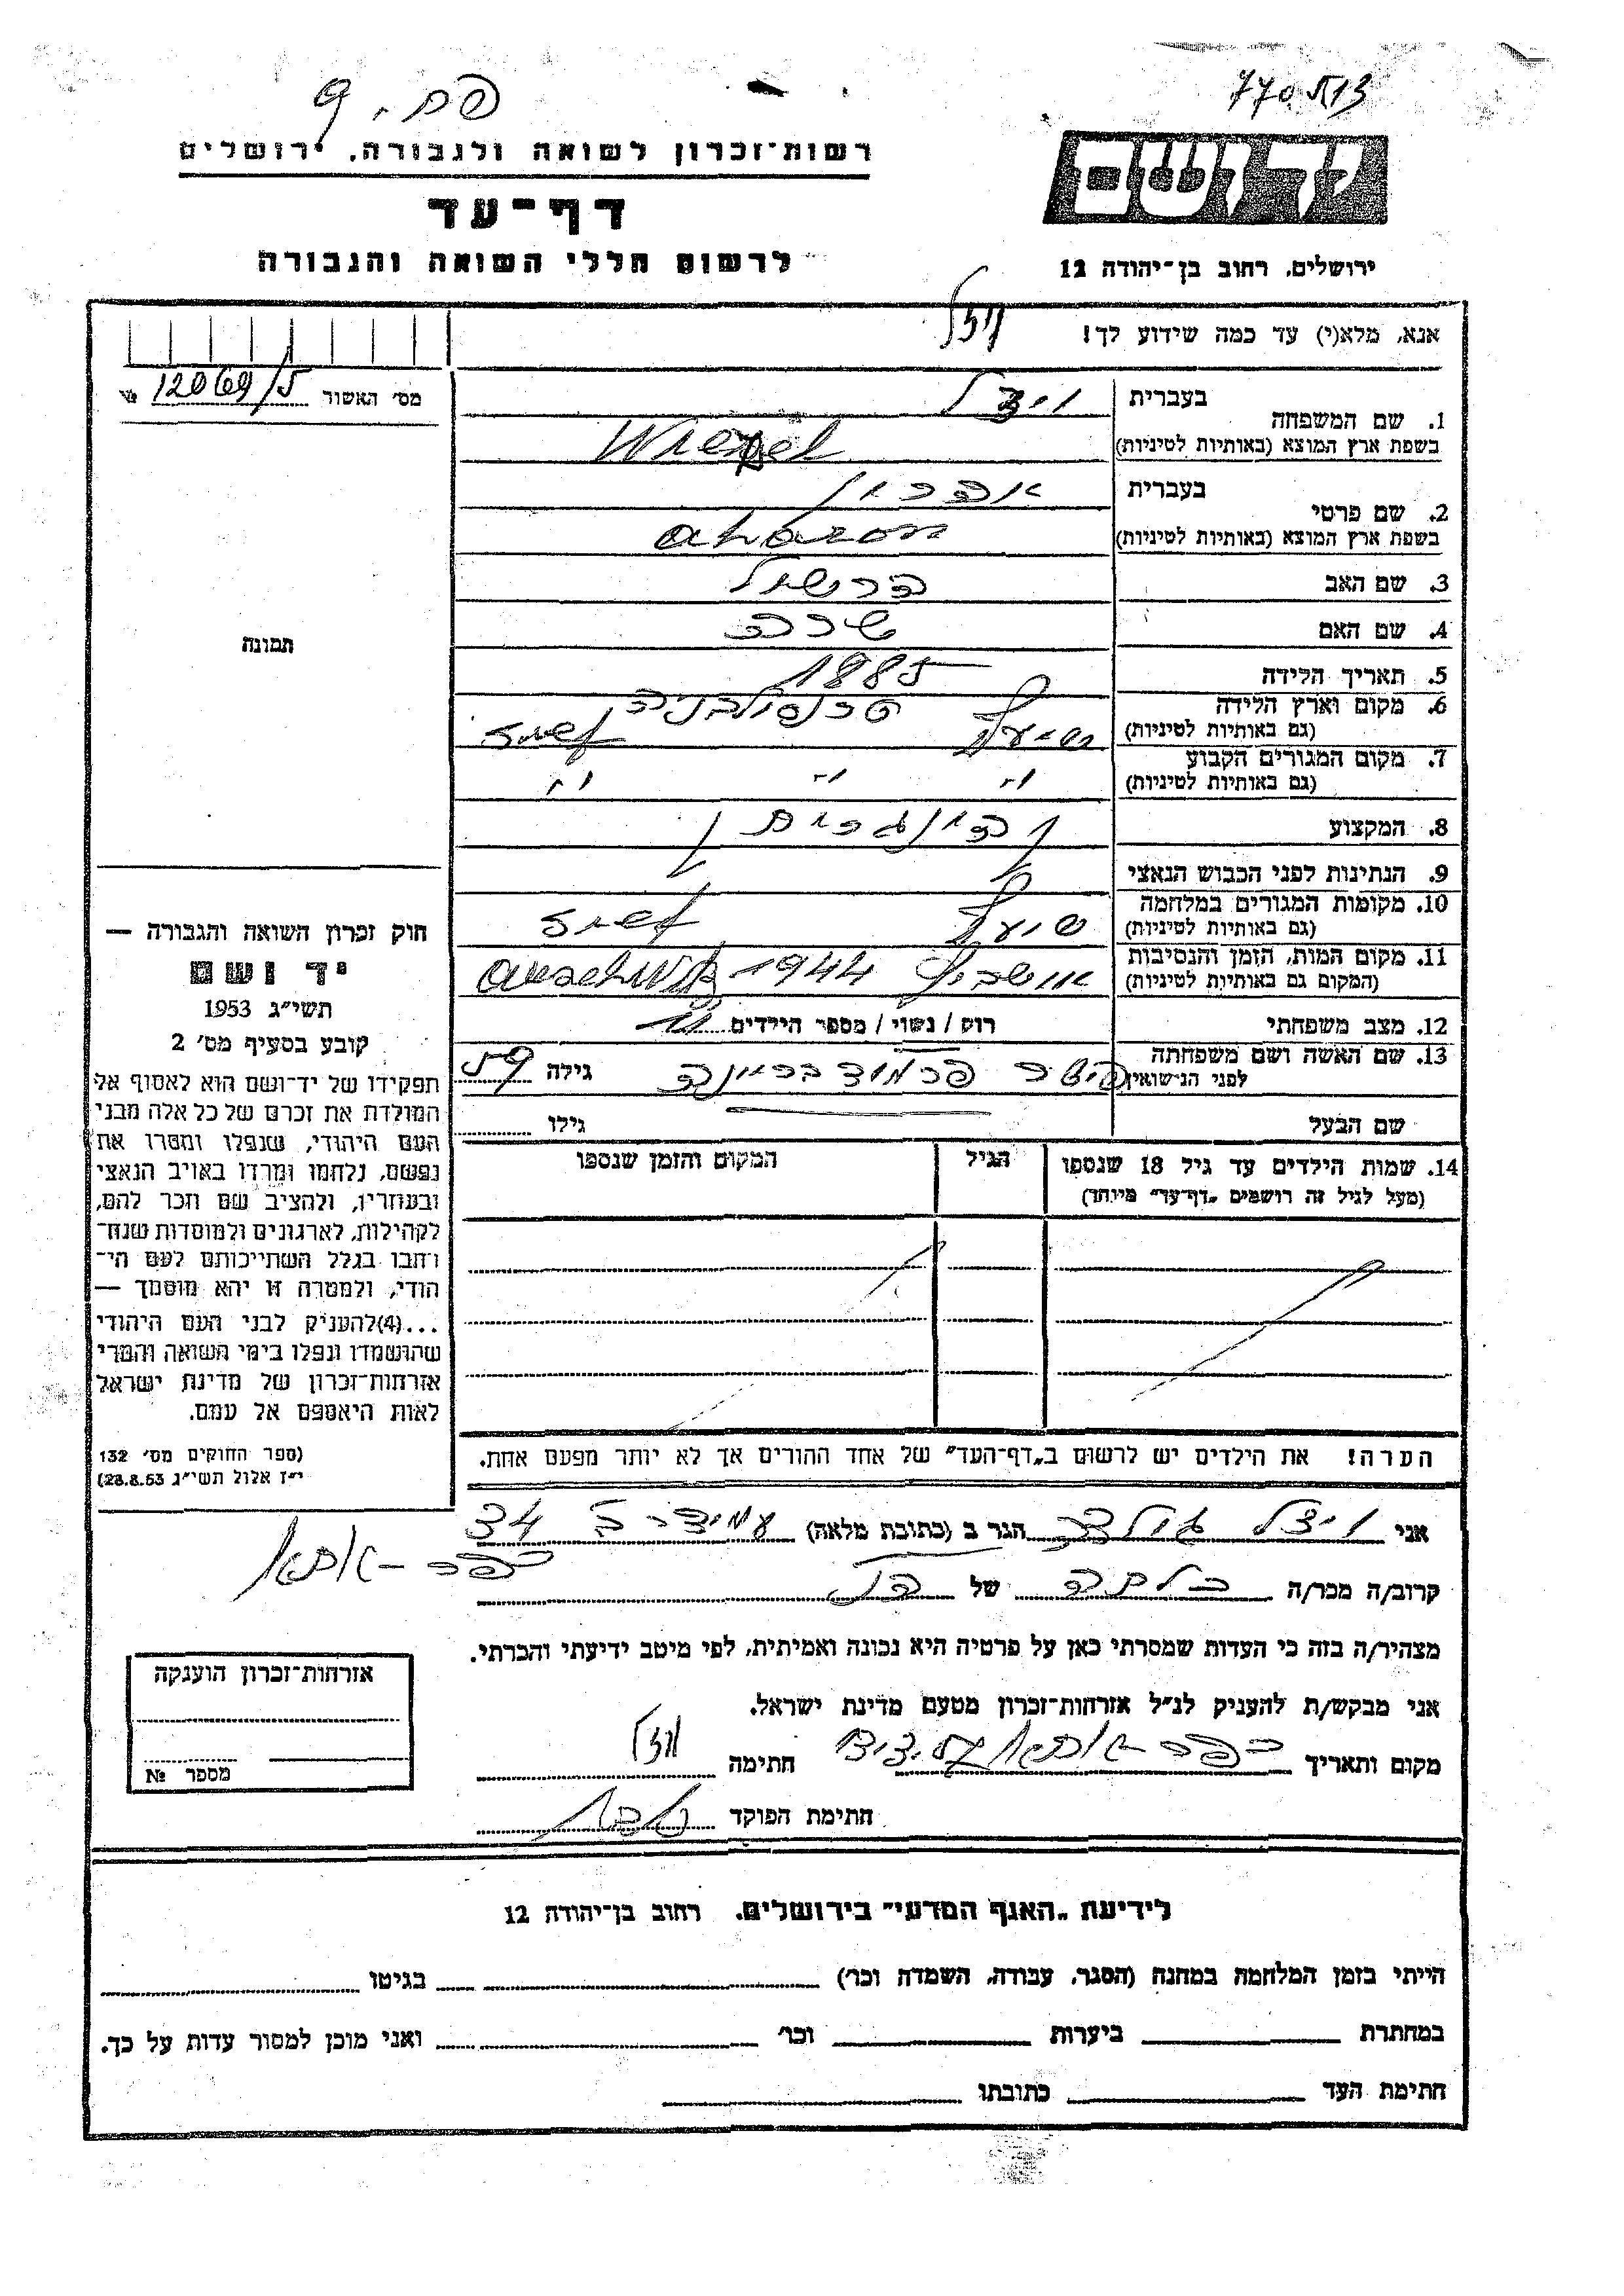 רשות־זכרון לשואה ולגבורה, ירושלים
דף־עד
לרשום חללי השואה והגבורה
יד ושם
ירושלים, רחוב בן־יהודה 12
אנא, מלא(י) עד כמה שידוע לך!
מס׳ האשור 12069/5 №
1. שם המשפחה
בעברית ויזל
בשפת ארץ המוצא (באותיות לטיניות)
2. שם פרטי
בעברית אהרון
בשפת ארץ המוצא (באותיות לטיניות) aharon
3. שם האב הרשיל
4. שם האם שרה
5. תאריך הלידה 1885
6. מקום וארץ הלידה טרנסילבניה
(גם באותיות לטיניות)
7. מקום המגורים הקבוע
(גם באותיות לטיניות) "  "  "
8. המקצוע
9. הנתינות לפני הכבוש הנאצי
10. מקומות המגורים במלחמה
(גם באותיות לטיניות)
11. מקום המות, הזמן והנסיבות
(המקום גם באותיות לטיניות) אושביץ 1944 Auschwitz
12. מצב משפחתי רוק / נשוי / מספר הילדים
13. שם האשה ושם משפחתה
לפני הנישואין גילה 59
שם הבעל גילו
14. שמות הילדים עד גיל 18 שנספו הגיל המקום והזמן שנספו
(מעל לגיל זה רושמים „דף־עד" מיוחד)
הערה! את הילדים יש לרשום ב„דף־העד" של אחד ההורים אך לא יותר מפעם אחת.
תמונה
חוק זכרון השואה והגבורה —
יד ושם
תשי״ג 1953
קובע בסעיף מס׳ 2
תפקידו של יד־ושם הוא לאסוף אל
המולדת את זכרם של כל אלה מבני
העם היהודי, שנפלו ומסרו את
נפשם, נלחמו ומרדו באויב הנאצי
ובעוזריו, ולהציב שם וזכר להם,
לקהילות, לארגונים ולמוסדות שנח־
רבו בגלל השתייכותם לעם הי־
הודי, ולמטרה זו יהא מוסמך —
...(4)להעניק לבני העם היהודי
שהושמדו ונפלו בימי השואה והמרי
אזרחות־זכרון של מדינת ישראל
לאות היאספם אל עמם.
(ספר החוקים מס׳ 132
י״ז אלול תשי״ג 28.8.53)
אני ויזל גולדה הגר ב (כתובת מלאה) עמידר ב 34
כפר-אתא
קרוב/ה מכר/ה כלתה של הנ״ל
מצהיר/ה בזה כי העדות שמסרתי כאן על פרטיה היא נכונה ואמיתית, לפי מיטב ידיעתי והכרתי.
אני מבקש/ת להעניק לנ״ל אזרחות־זכרון מטעם מדינת ישראל.
מקום ותאריך כפר-אתא חתימה
חתימת הפוקד
אזרחות־זכרון הוענקה
מספר №
לידיעת „האגף המדעי" בירושלים. רחוב בן־יהודה 12
הייתי בזמן המלחמה במחנה (הסגר, עבודה, השמדה וכו׳) בגיטו
במחתרת ביערות וכו׳ ואני מוכן למסור עדות על כך.
חתימת העד כתובתו